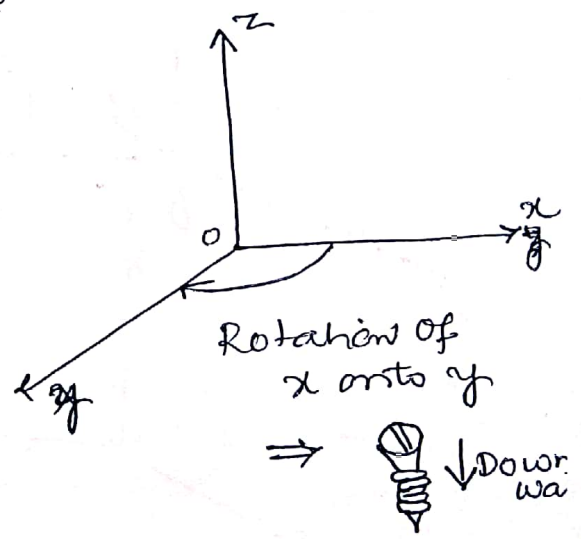 z
x
O
y
Rotation of
x onto y
⇒
Down
wa